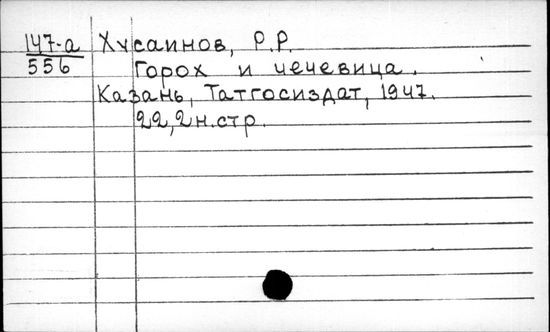 147-а Хусаинов, Р.Р.
556 Горох и чечевица.
Казань, Татгосиздат, 1947.
22,2н.стр.